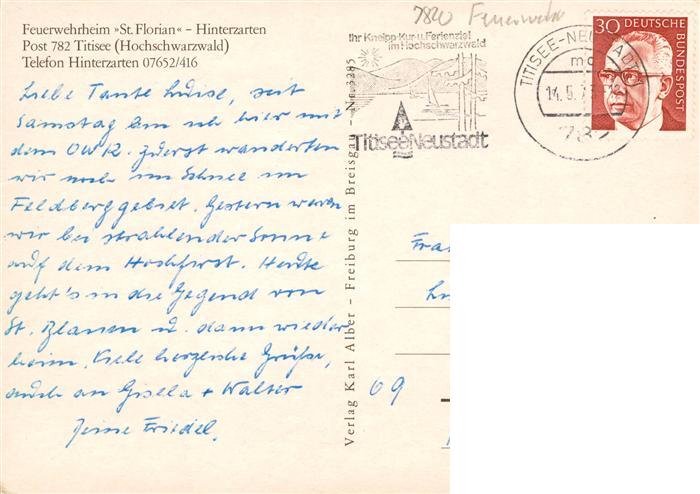 Feuerwehrheim »St. Florian« – Hinterzarten
Post 782 Titisee (Hochschwarzwald)
Telefon Hinterzarten 07652/416
Liebe Tante Luise, seit
Samstag bin ich hier mit
dem OWK. Zuerst wanderten
wir noch im Schnee im
Feldberggebiet. Gestern waren
wir bei strahlender Sonne
auf dem Hochfirst. Heute
geht's in die Gegend von
St. Blasien u. dann wieder
heim. Viele herzliche Grüße,
auch an Gisela + Walter
Deine Friedel.
Verlag Karl Alber – Freiburg im Breisgau – Nr. 3285
7820 Feuerwehr
Ihr Kneipp-Kur-u. Ferienziel
im Hochschwarzwald
Titisee Neustadt
TITISEE-NEUSTADT
mc
14.5.
782
30 DEUTSCHE
BUNDESPOST
Fra
Lu
69